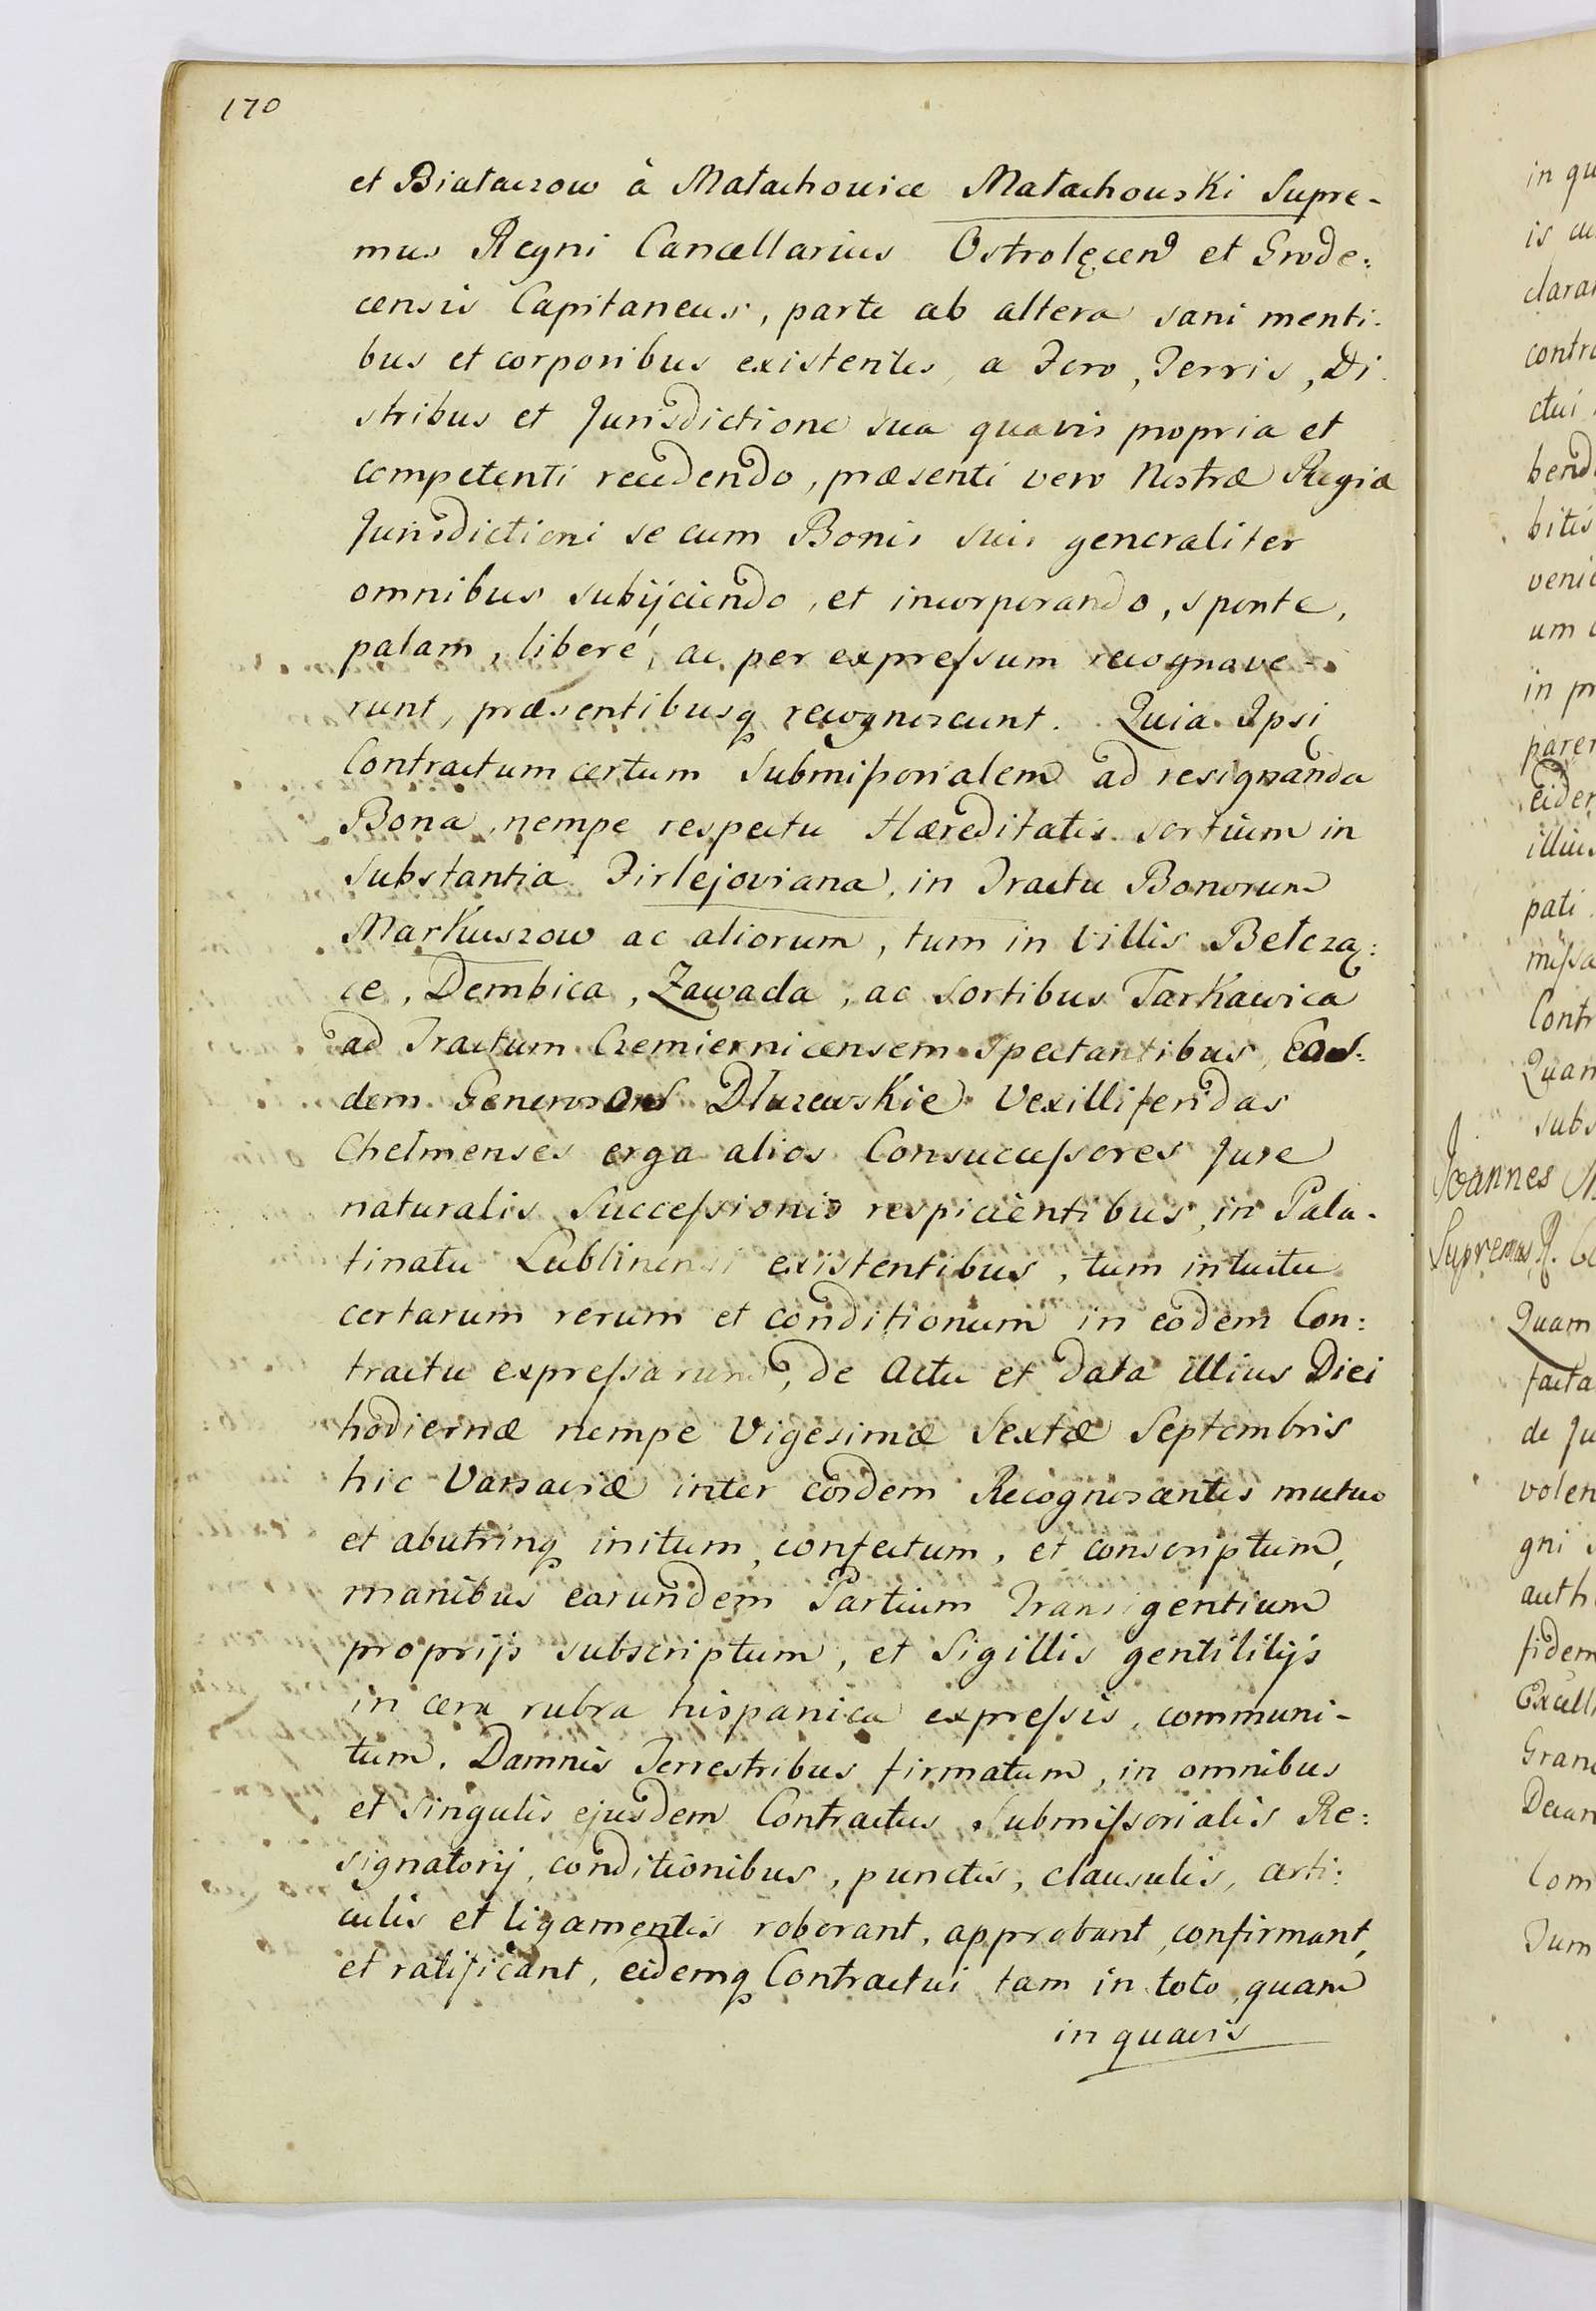 170
et Białaczow à Małachowice Małachowski Supre-
mus Regni Cancellarius Ostrołęcen et Grode:
censis Capitaneus, parte ab altera sani menti-
bus et corporibus existentes, a Foro, Terris, Di-
stribus et Jurisdictione sua quavis propria et
competenti recedendo, præsenti vero Nostræ Regiæ
Jurisdictioni se cum Bonis suis generaliter
omnibus subijciendo, et incorporando, sponte,
palam, liberé, ac per expressum recognove-
runt, præsentibusq recognoscunt. Quia Ipsi
Contractum certum Submissorialem ad resignanda
Bona, nempe respectu Hæreditatis sortium in
Substantia Firlejoviana, in Tractu Bonorum
Markuszow ac aliorum, tum in Villis Bełczą:
ce, Dembica, Zawada, ac Sortibus Tarkawica
ad Tractum Czemiernicensem spectantibus, Eas-
dem Generosas Dłuzewskie Vexilliferidas
Chełmenses erga alios Consuccessores Jure
naturalis Successionis respicientibus, in Pala-
tinatu Lublinensi existentibus, tum intuitu
certarum rerum et conditionum in eodem Con:
tractu expressarum, de Actu et data illius Diei
hodiernæ nempe Vigesimæ Sextæ Septembris
hic Varsaviæ inter eosdem Recognoscentes mutuo
et abutrinq initum, confectum, et conscriptum,
manibus earundem Partium Transigentium
proprijs subscriptum, et Sigillis gentilitijs
in cera rubra hispanica expressis, communi-
tum. Damnis Terrestribus firmatum, in omnibus
et singulis ejusdem Contractus Submissorialis Re:
signatorij, conditionibus, punctis, clausulis, arti:
culis et ligamentis roborant, approbant, confirmant,
et ratificant, eidemq Contractui tam in toto, quam
in quavis
in qu
is cu
clarar
contra
ctui
bend
bitis
venie
um
in pr
paren
eider
illius
pati
missa
Contr
Quam
subs
Joannes M
Supremus R. Ca
Quam
facta
de Ju
volen
gni
auth
fidem
Excell
Grand
Decan
Com
Dum